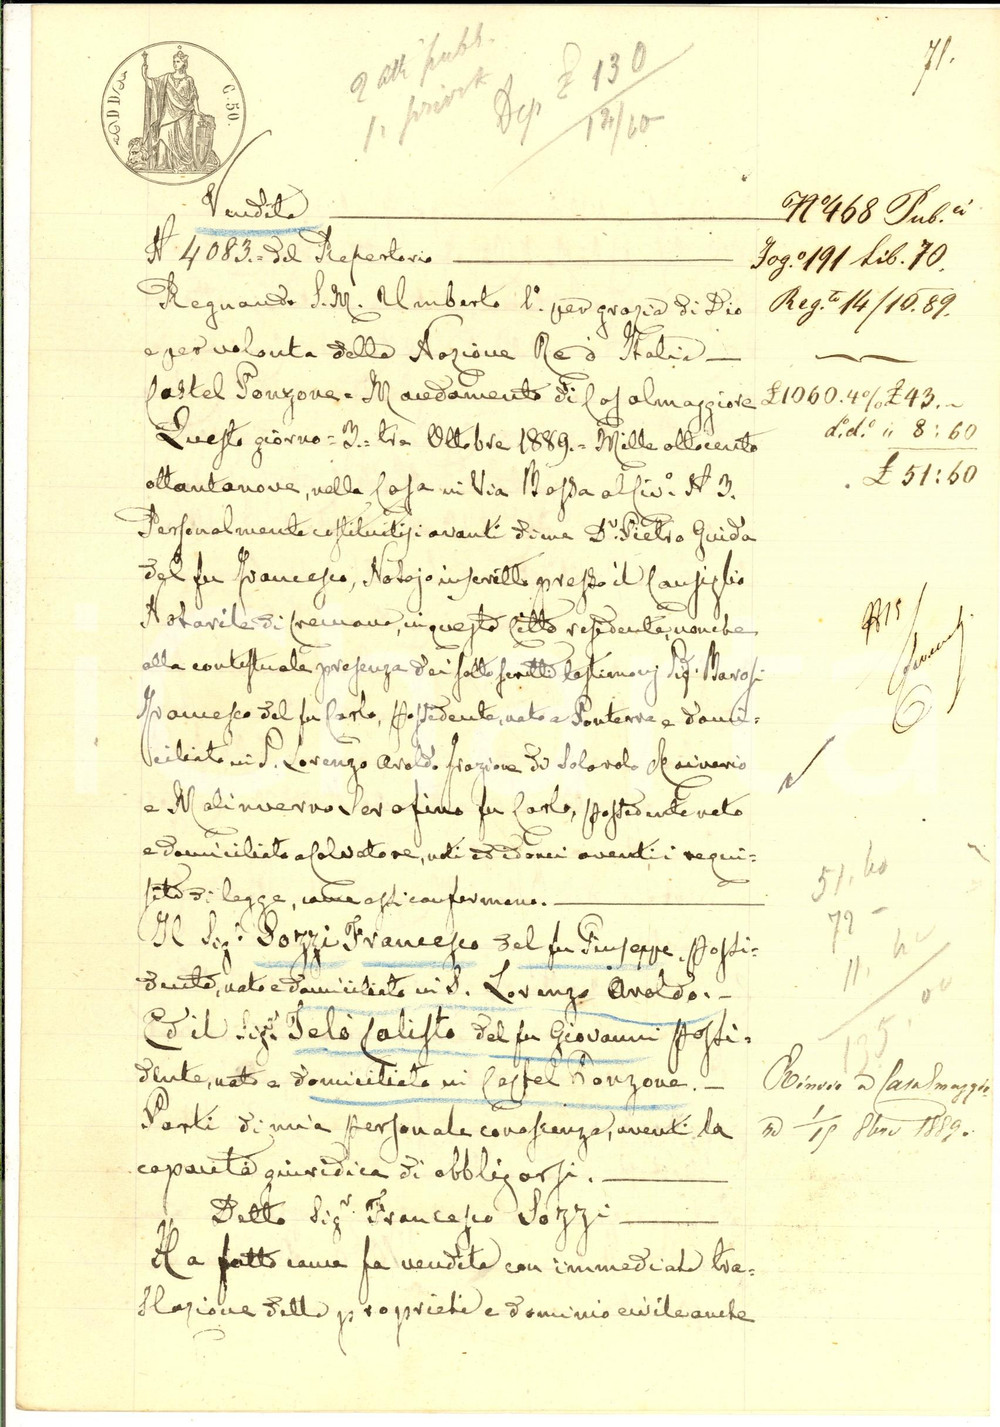 71.
2 atti pubb.
1 privat
Dep £ 130
12/60
C. 50.
Vendita
N 4083.= del Repertorio
Regnando S. M. Umberto 1°. per grazia di Dio
e per volontà della Nazione Re d'Italia
Castel Ponzone = Mandamento di Casalmaggiore
Questo giorno = 3.= tre Ottobre 1889.= Mille ottocento
ottantanove, nella Casa in Via Bassa al Civ°. N 3.
Personalmente costituitisi avanti di me Dr. Pietro Guida
del fu Francesco, Notajo inscritto presso il Consiglio
Notarile di Cremona, in questa Città residente, nonche
alla contestuale presenza dei sotto scritti testimonj Sigr. Barosi
Francesco del fu Carlo, possidente, nato a Ponterra e domi=
ciliato in S. Lorenzo Aroldo frazione di Solarolo Rainerio
e Malinverno Serafino fu Carlo, possidente nato
e domiciliato a Solvatore, noti ed idonei aventi i requi=
siti di legge, come essi confermano.
Il Sigr. Sozzi Francesco del fu Giuseppe, possi=
dente, nato e domiciliato in S. Lorenzo Aroldo. –
Ed il Sigr. Telò Calisto del fu Giovanni possi=
dente, nato e domiciliato in Castel Ponzone. –
Parti di mia personale conoscenza, aventi la
capacità giuridica di obbligarsi.
Detto Sigr. Francesco Sozzi
Ha fatto come fa vendita con immediata tra=
slazione della proprietà e dominio civile anche
N° 468 Pub.ci
Fog.° 191 Lib. 70.
Reg.to 14/10.89.
£ 1060. 4% £ 43. –
d.i d.i " 8:60
£ 51:60
51.60
72 –
Rinvio a Casalmaggio